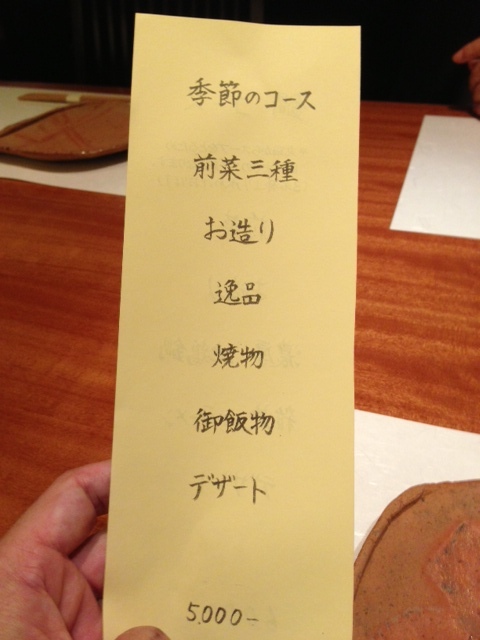 季節のコース
前菜三種
お造り
逸品
焼物
御飯物
デザート
5,000-